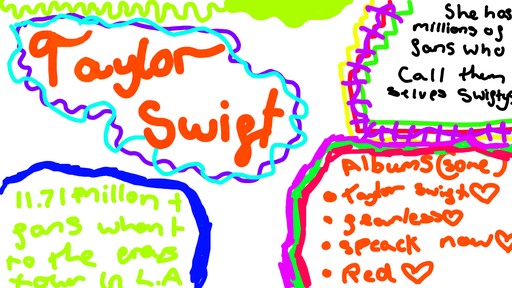 Taylor
Swift
She has
millions of
fans who
Call them
selves swiftys
11.71 millon +
fans whant
to the eras
tour in L.A
Albums (some)
Taylor swift
fearless
speack now
Red